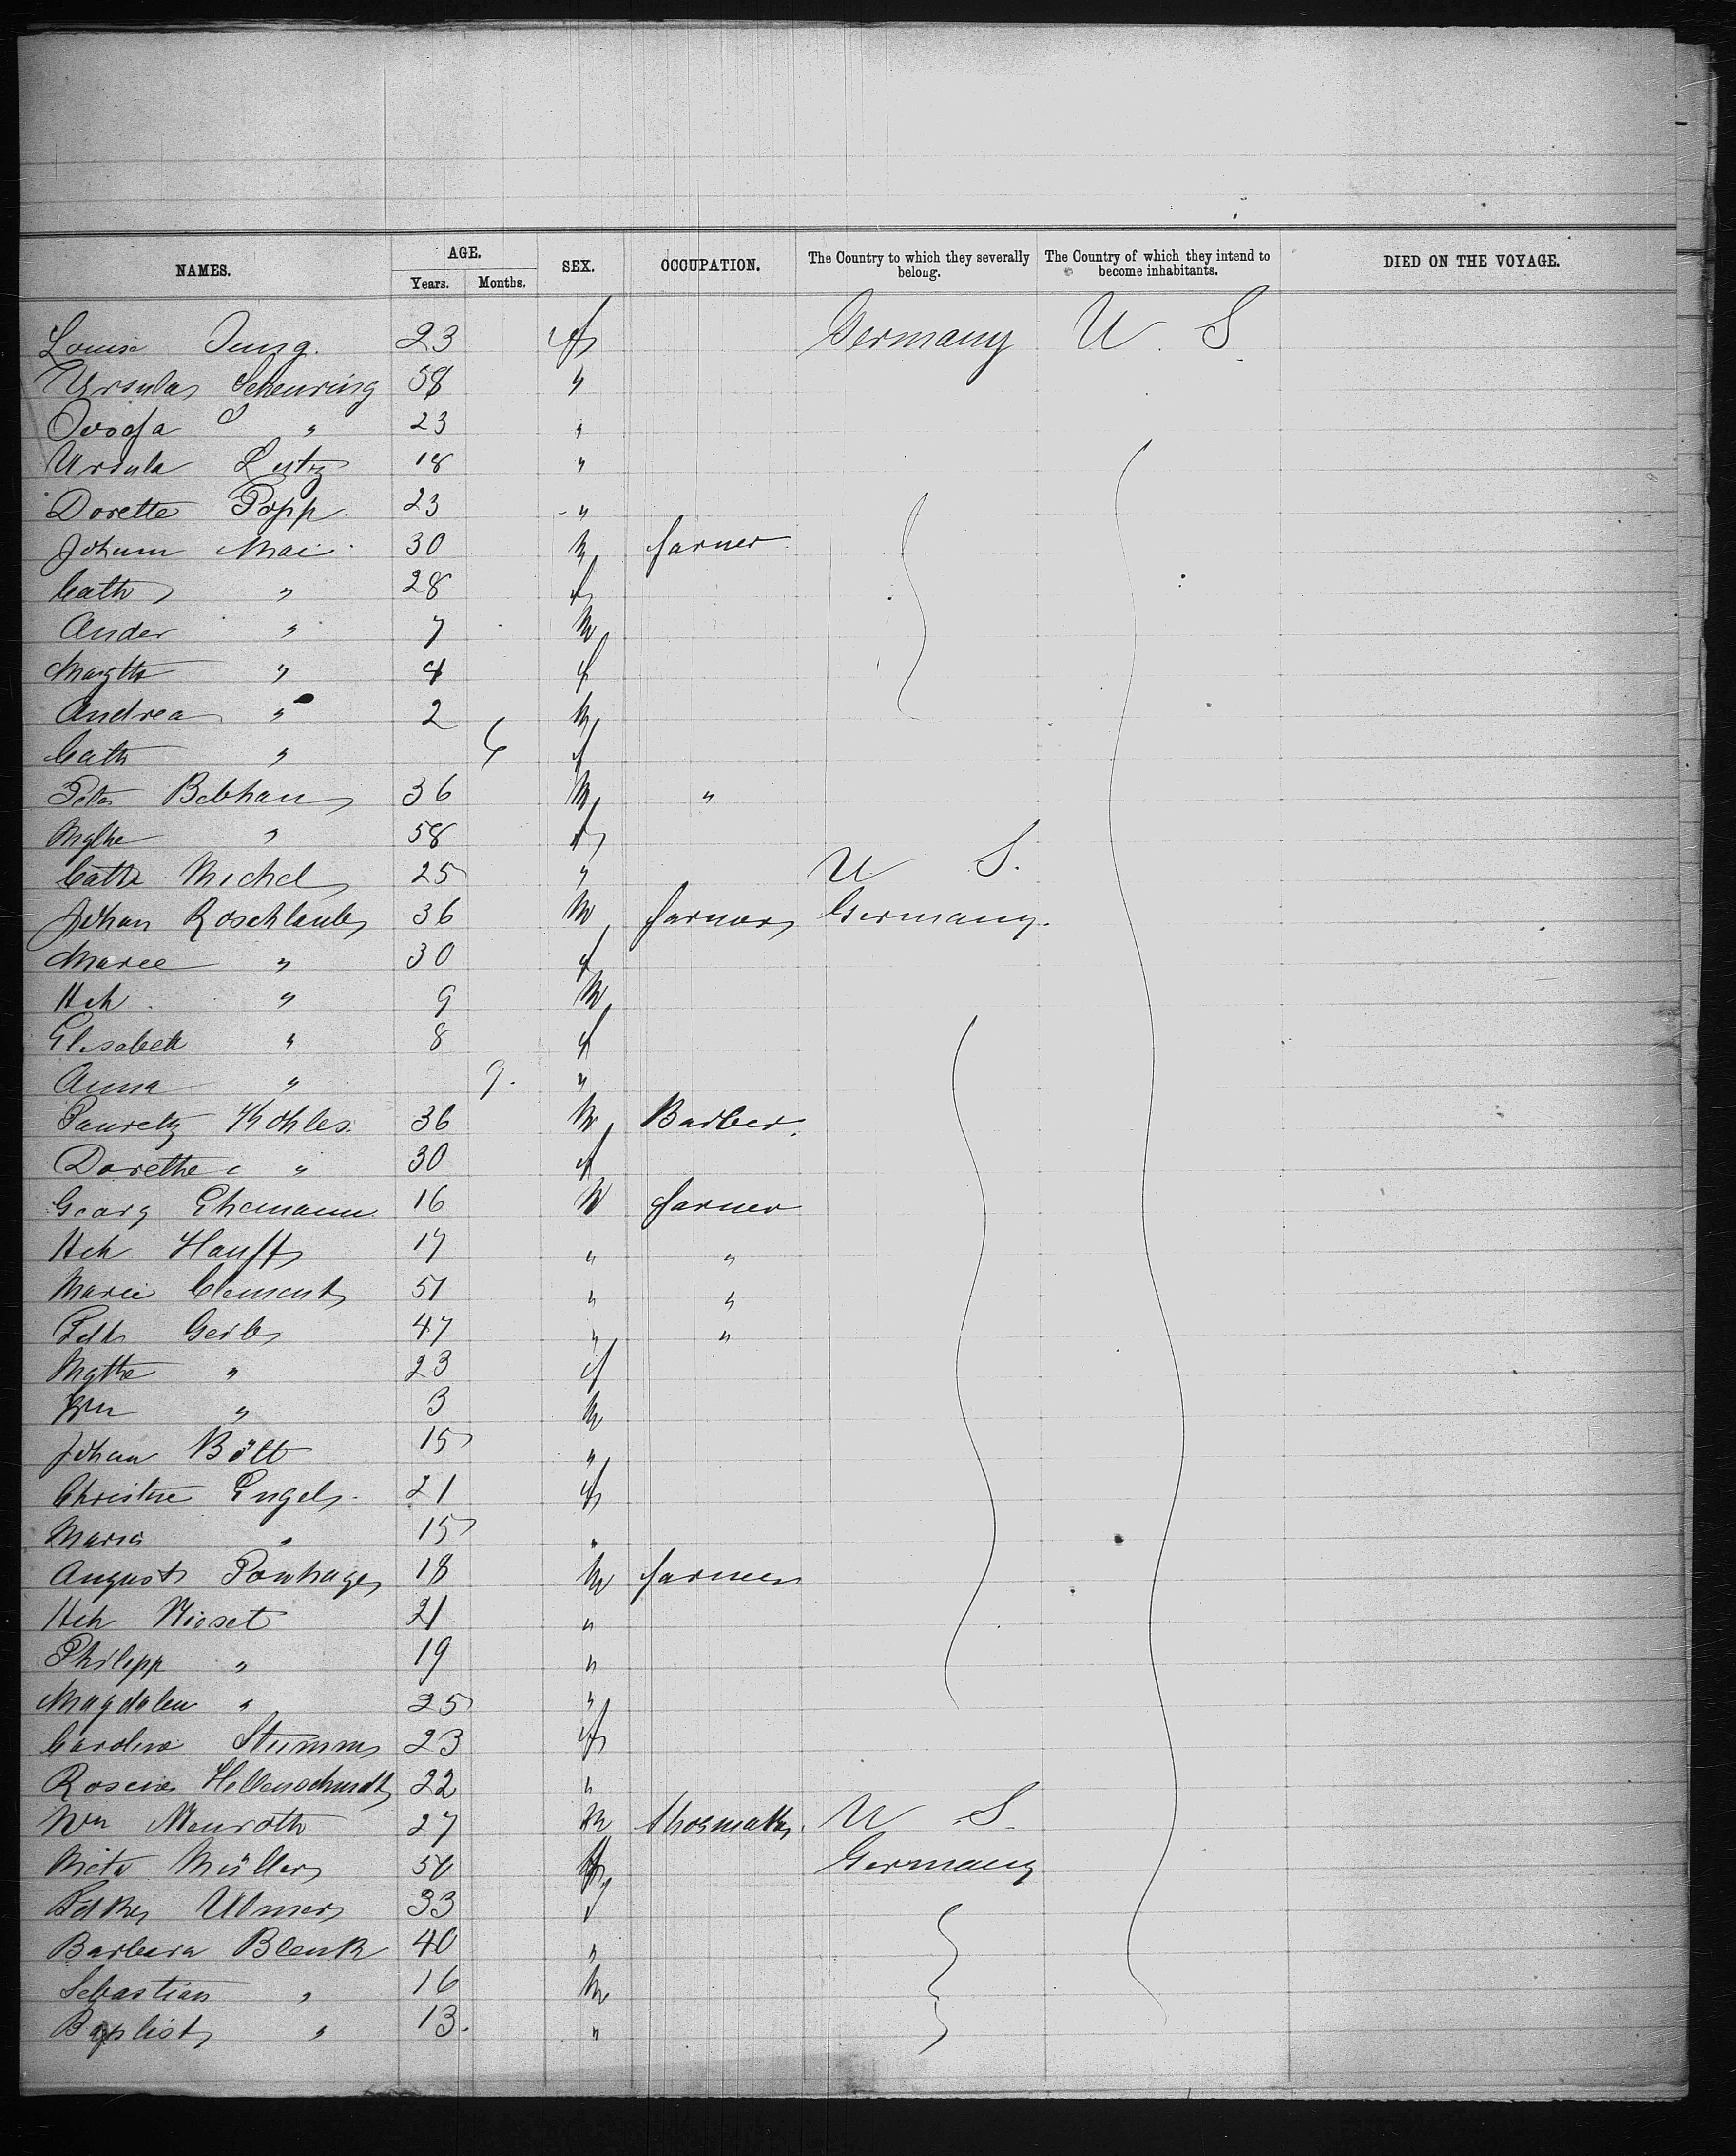 NAMES. AGE. SEX. OCCUPATION. The Country to which they severally belong. The Country of which they intend to become inhabitants. DIED ON THE VOYAGE.
Years. Months.
Louise Jung. 23 f Germany U. S.
Ursula Scheuring 58 "
" 23 "
Ursula Lutz 18 "
Dorette Popp. 23 "
Johann Mai. 30 M farmer
Cath " 28 f
Ander " 7 M
Margth " 4 f
Andrea " 2 M
Cath " 6 f
Peter Bebhan 36 M "
" 58 f
Cath Michel 25 " U S.
Johan Roschlaub 36 M farmer Germany.
Marie " 30 f
Hch " 9 M
Elisabeth " 8 f
Anna " 9. "
Kohles. 36 M Barber.
Dorethe " 30 f
Georg Ehemann 16 M farmer
Hch Hauff 17 " "
Marie Clement 51 " "
Geib 47 " "
Mgthe " 23 f
" 3 M
Johan Bött 15 "
Christine Engel. 21 f
Maria " 15 "
August Ponhage 18 M farmer
Hch 21 "
Philipp " 19 "
Magdalen " 25 "
Caroline Stumm 23 f
Rosine Hellenschmidt 22 "
Wm Menroth 27 M shoemaker. U S.
Meta Müller 50 f Germany
Ulmer 33 f
Barbara Blenk 40 "
Sebastian " 16 M
Baptist " 13. "